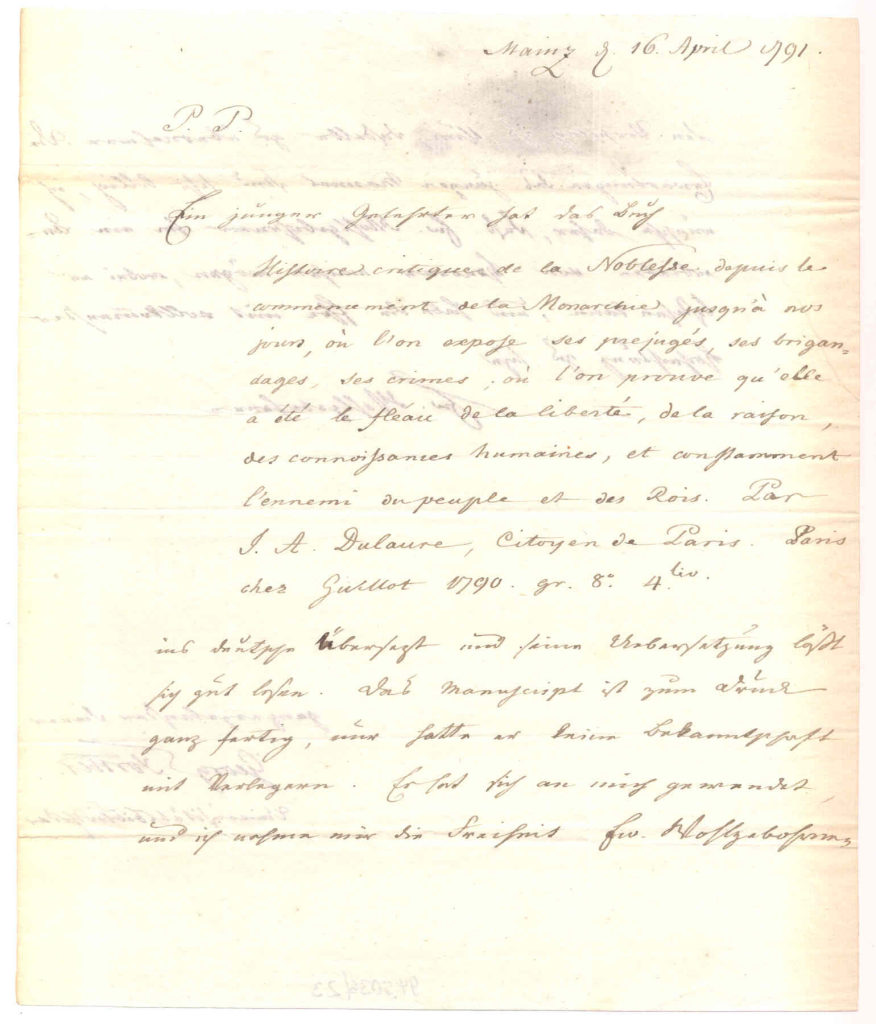 Mainz d. 16. April 1791.
P. P.
Ein junger Gelehrter hat das Buch
Histoire critique de la Noblesse depuis le
commencement de la Monarchie jusqu'à nos
jours, où l'on expose ses prejugés, ses brigan=
dages, ses crimes; où l'on prouve qu'elle
a été le fléau de la liberté, de la raison,
des connoissances humaines, et constamment
l'ennemi du peuple et des Rois. Par
J. A. Dulaure, Citoyen de Paris. Paris
chez Guillot 1790. gr. 8.° 4. liv.
ins deutsche übersezt und seine Uebersetzung läßt
sich gut lesen. Das Manuscript ist zum Druck
ganz fertig, nur hatte er keine Bekanntschaft
mit Verlegern. Er hat sich an mich gewendet,
und ich nehme mir die Freiheit Ew. Wohlgebohrnen
945034/23